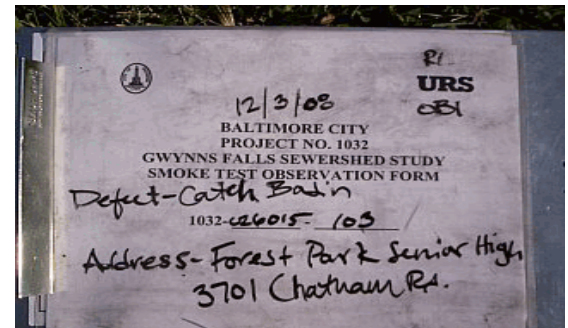 R1
URS
OB1
12/3/08
BALTIMORE CITY
PROJECT NO. 1032
GWYNNS FALLS SEWERSHED STUDY
SMOKE TEST OBSERVATION FORM
Defect-Catch Basin
1032-C26015- 103
Address- Forest Park Senior High
3701 Chatham Rd.